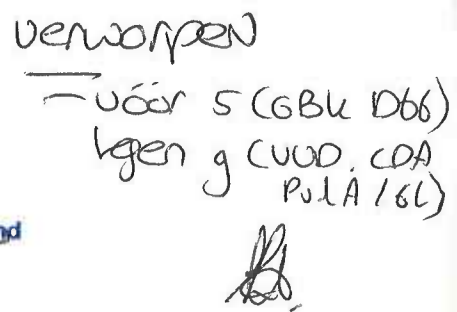 verworpen
- vóór 5 (GBK D66)
tegen 9 (VVD. CDA
PvdA/GL)
nd